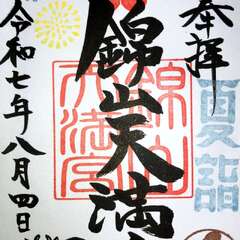 奉拝
夏詣
錦山天満宮
錦山
天満宮
令和七年八月四日